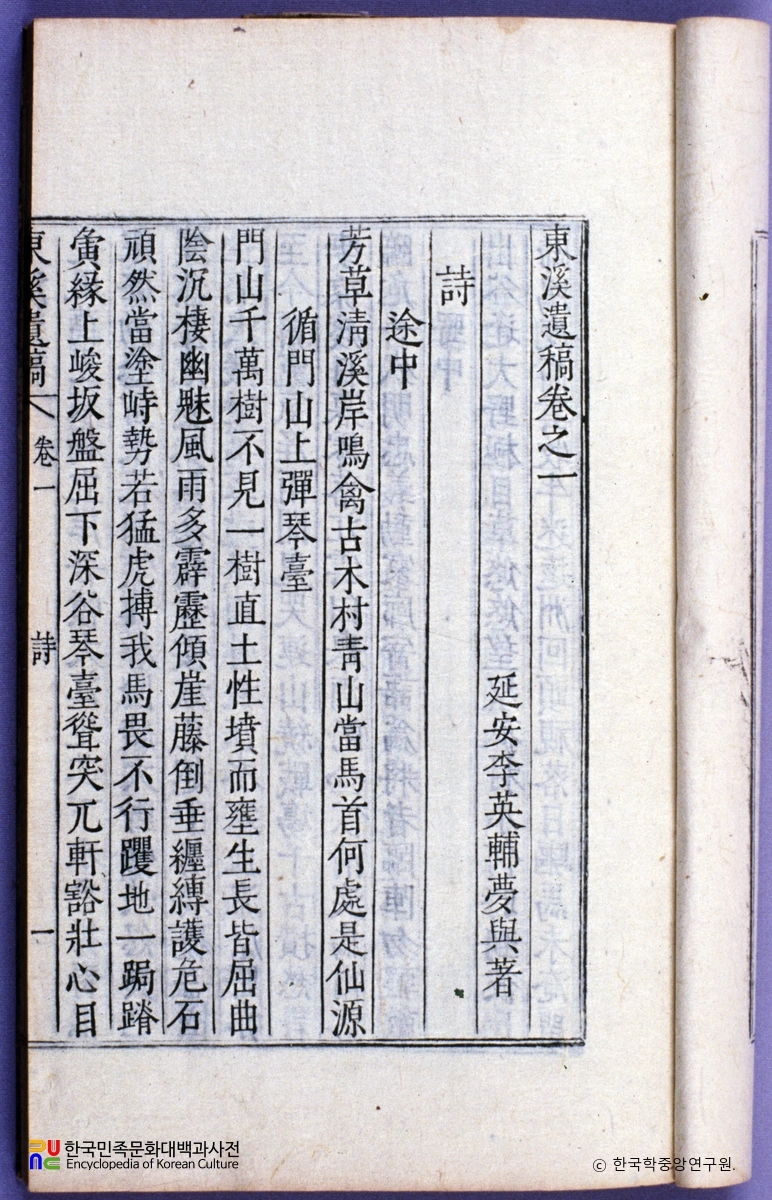 東溪遺稿卷之一
延安李英輔夢與著
詩
途中
芳草淸溪岸鳴禽古木村靑山當馬首何處是仙源
循門山上彈琴臺
門山千萬樹不見一樹直土性墳而壅生長皆屈曲
陰沉棲幽魅風雨多霹靂傾崖藤倒垂纏縛護危石
頑然當塗峙勢若猛虎搏我馬畏不行躩地一跼蹐
夤緣上峻坂盤屈下深谷琴臺聳突兀軒豁壯心目
東溪遺稿 卷一 詩 一
한국민족문화대백과사전
Encyclopedia of Korean Culture
© 한국학중앙연구원.